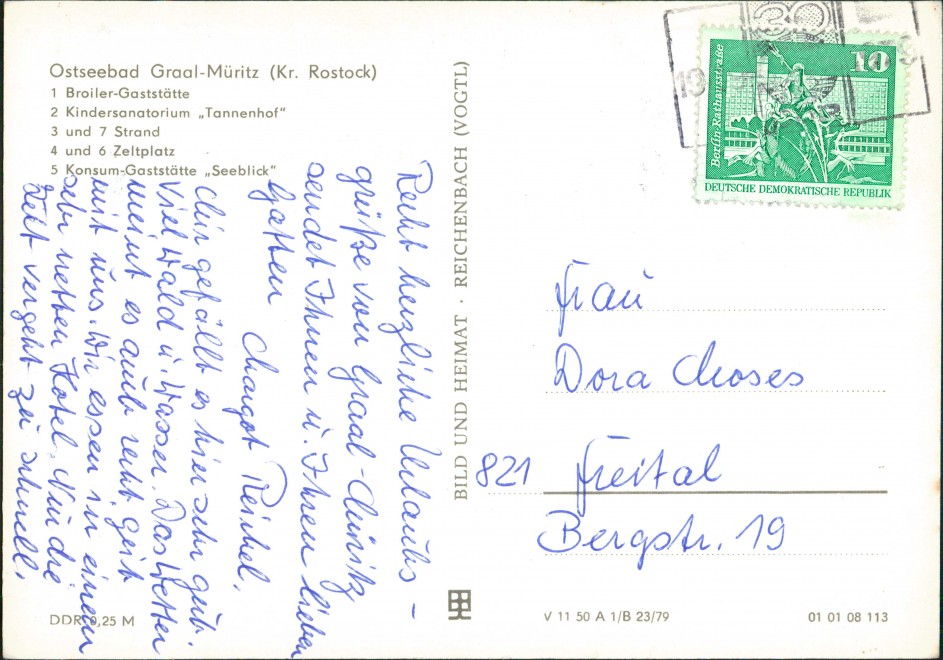 Ostseebad Graal-Müritz (Kr. Rostock)
1 Broiler-Gaststätte
2 Kindersanatorium „Tannenhof“
3 und 7 Strand
4 und 6 Zeltplatz
5 Konsum-Gaststätte „Seeblick“
Recht herzliche Urlaubs-
grüße von Graal-Müritz
sendet Ihnen u. Ihren lieben
Gatten
Margot Reichel.
Mir gefällt es hier sehr gut.
Viel Wald u. Wasser. Das Wetter
meint es auch recht gut
mit uns. Wir essen in einem
sehr netten Hotel. Nun die
Zeit vergeht zu schnell.
BILD UND HEIMAT · REICHENBACH (VOGTL)
10
Berlin-Rathausstraße
DEUTSCHE DEMOKRATISCHE REPUBLIK
10
Frau
Dora Moses
821 Freital
Bergstr. 19
DDR 0,25 M
V 11 50 A 1/B 23/79
01 01 08 113